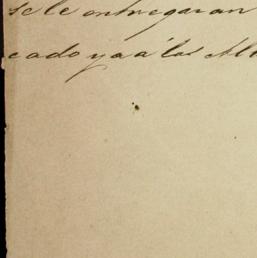 se le entregaran
cado ya á las